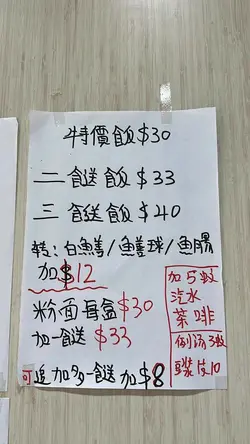 特價飯$30
二餸飯$33
三餸飯$40
轉：白鱔/鱔球/魚腸
加$12
粉面每盒$30
加一餸$33
可追加多一餸加$8
加5蚊
汽水
茶啡
例汤3蚊
支10